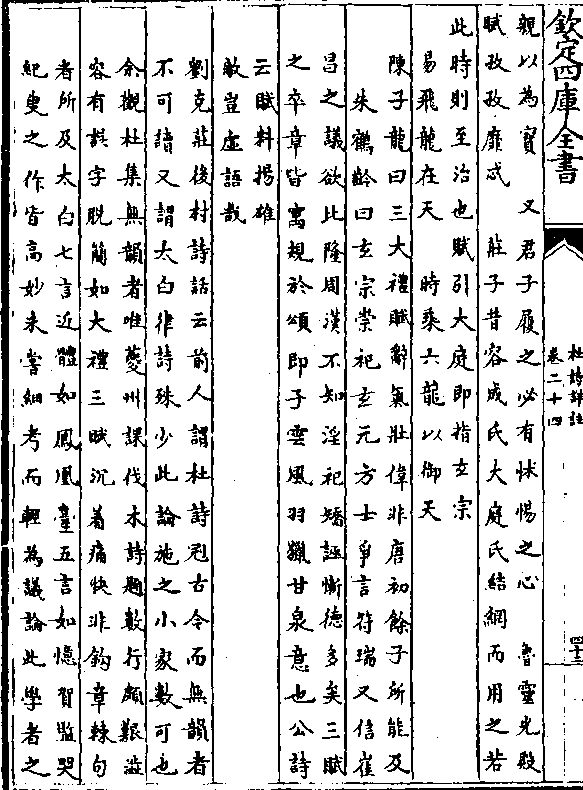 欽定四庫全書
杜詩詳註
卷二十四
四十三
親以為寶　又君子履之必有怵惕之心　魯靈光殿
賦孜孜靡忒　莊子昔容成氏大庭氏結網而用之若
此時則至治也賦引大庭即指玄宗
易飛龍在天　時乘六龍以御天
陳子龍曰三大禮賦辭氣壯偉非唐初餘子所能及
朱鶴齡曰玄宗崇祀玄元方士爭言符瑞又信崔
昌之議欲比隆周漢不知淫祀矯誣慚德多矣三賦
之卒章皆寓規於頌即子雲風羽獵甘泉意也公詩
云賦料揚雄
敵豈虛語哉
劉克莊後村詩話云前人謂杜詩冠古今而無韻者
不可讀又謂太白律詩殊少此論施之小家數可也
余觀杜集無韻者唯夔州課伐木詩題數行頗艱澁
容有誤字脫簡如大禮三賦沉着痛快非鈎章棘句
者所及太白七言近體如鳳凰臺五言如憶賀監哭
紀叟之作皆高妙未嘗細考而輕為議論此學者之